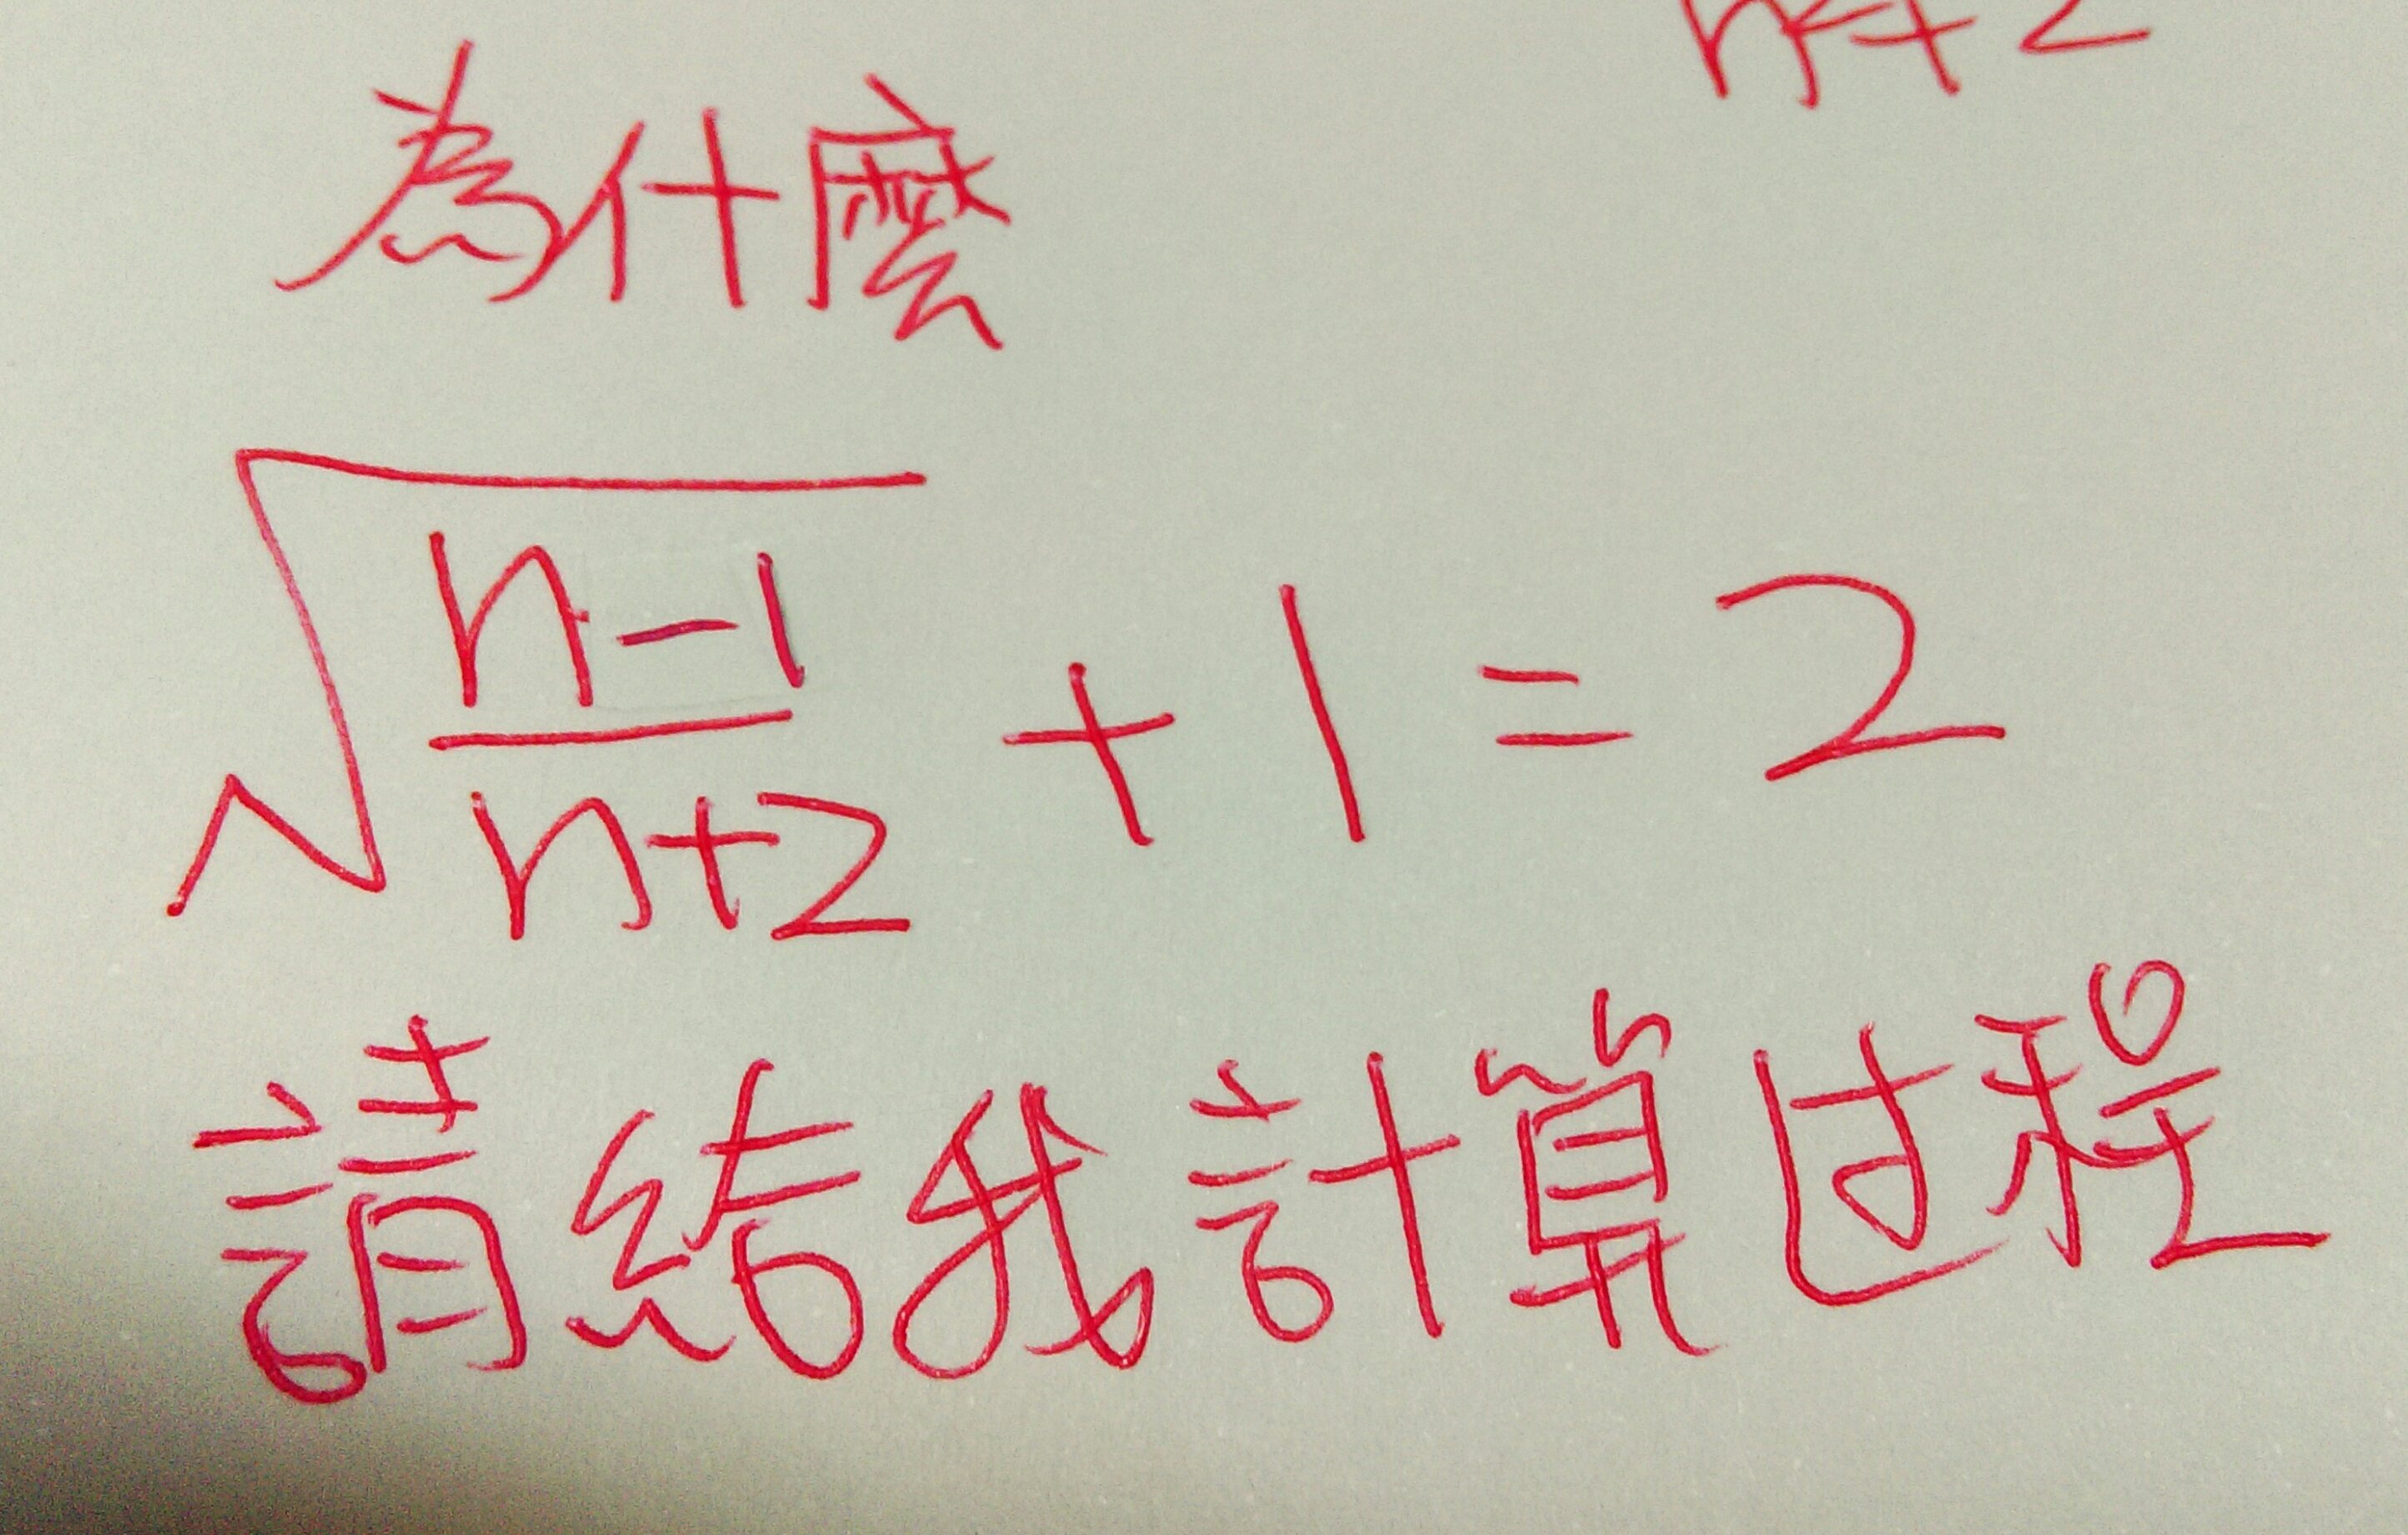 n+2
為什麼
√((n-1)/(n+2)) + 1 = 2
請給我計算过程